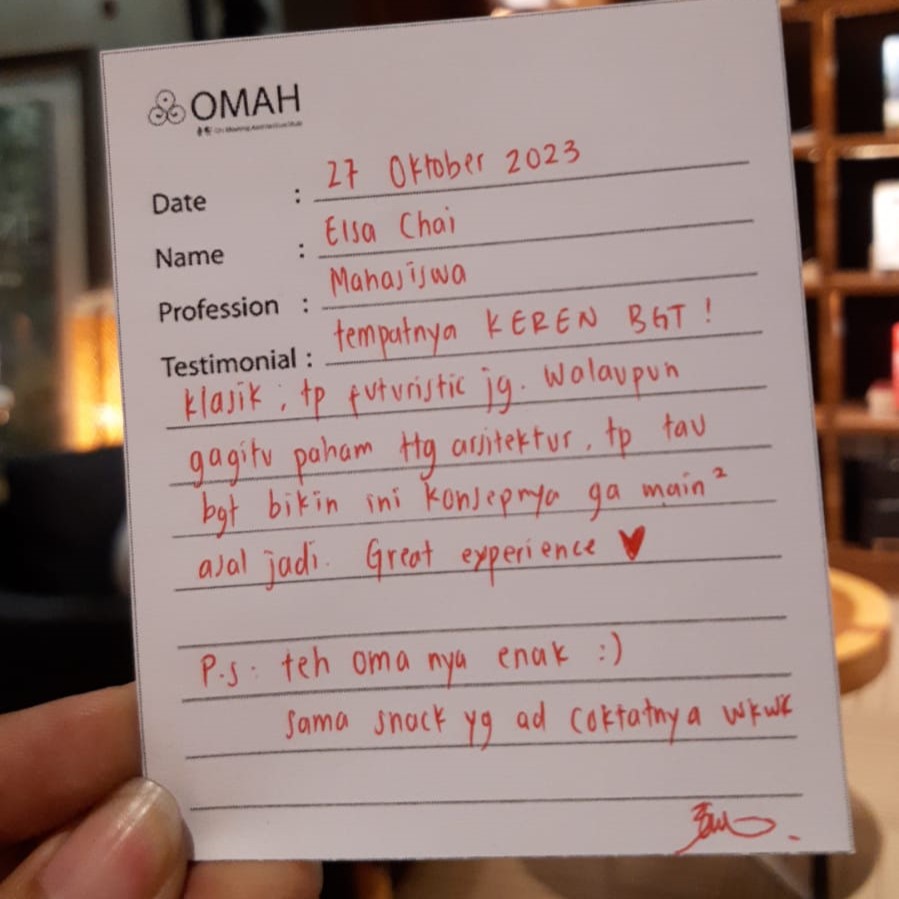 OMAH
Date : 27 Oktober 2023
Name : Elsa Chai
Profession : Mahasiswa
Testimonial : tempatnya KEREN BGT !
klasik, tp futuristic jg. Walaupun
gagitu paham ttg arsitektur, tp tau
bgt bikin ini konsepnya ga main²
asal jadi. Great experience ♥
P.s : teh oma nya enak :)
sama snack yg ad coktatnya wkwk